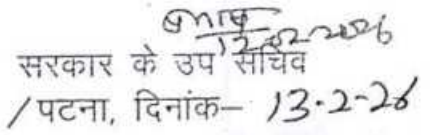 12.02.2026
सरकार के उप सचिव
/पटना, दिनांक– 13.2-26